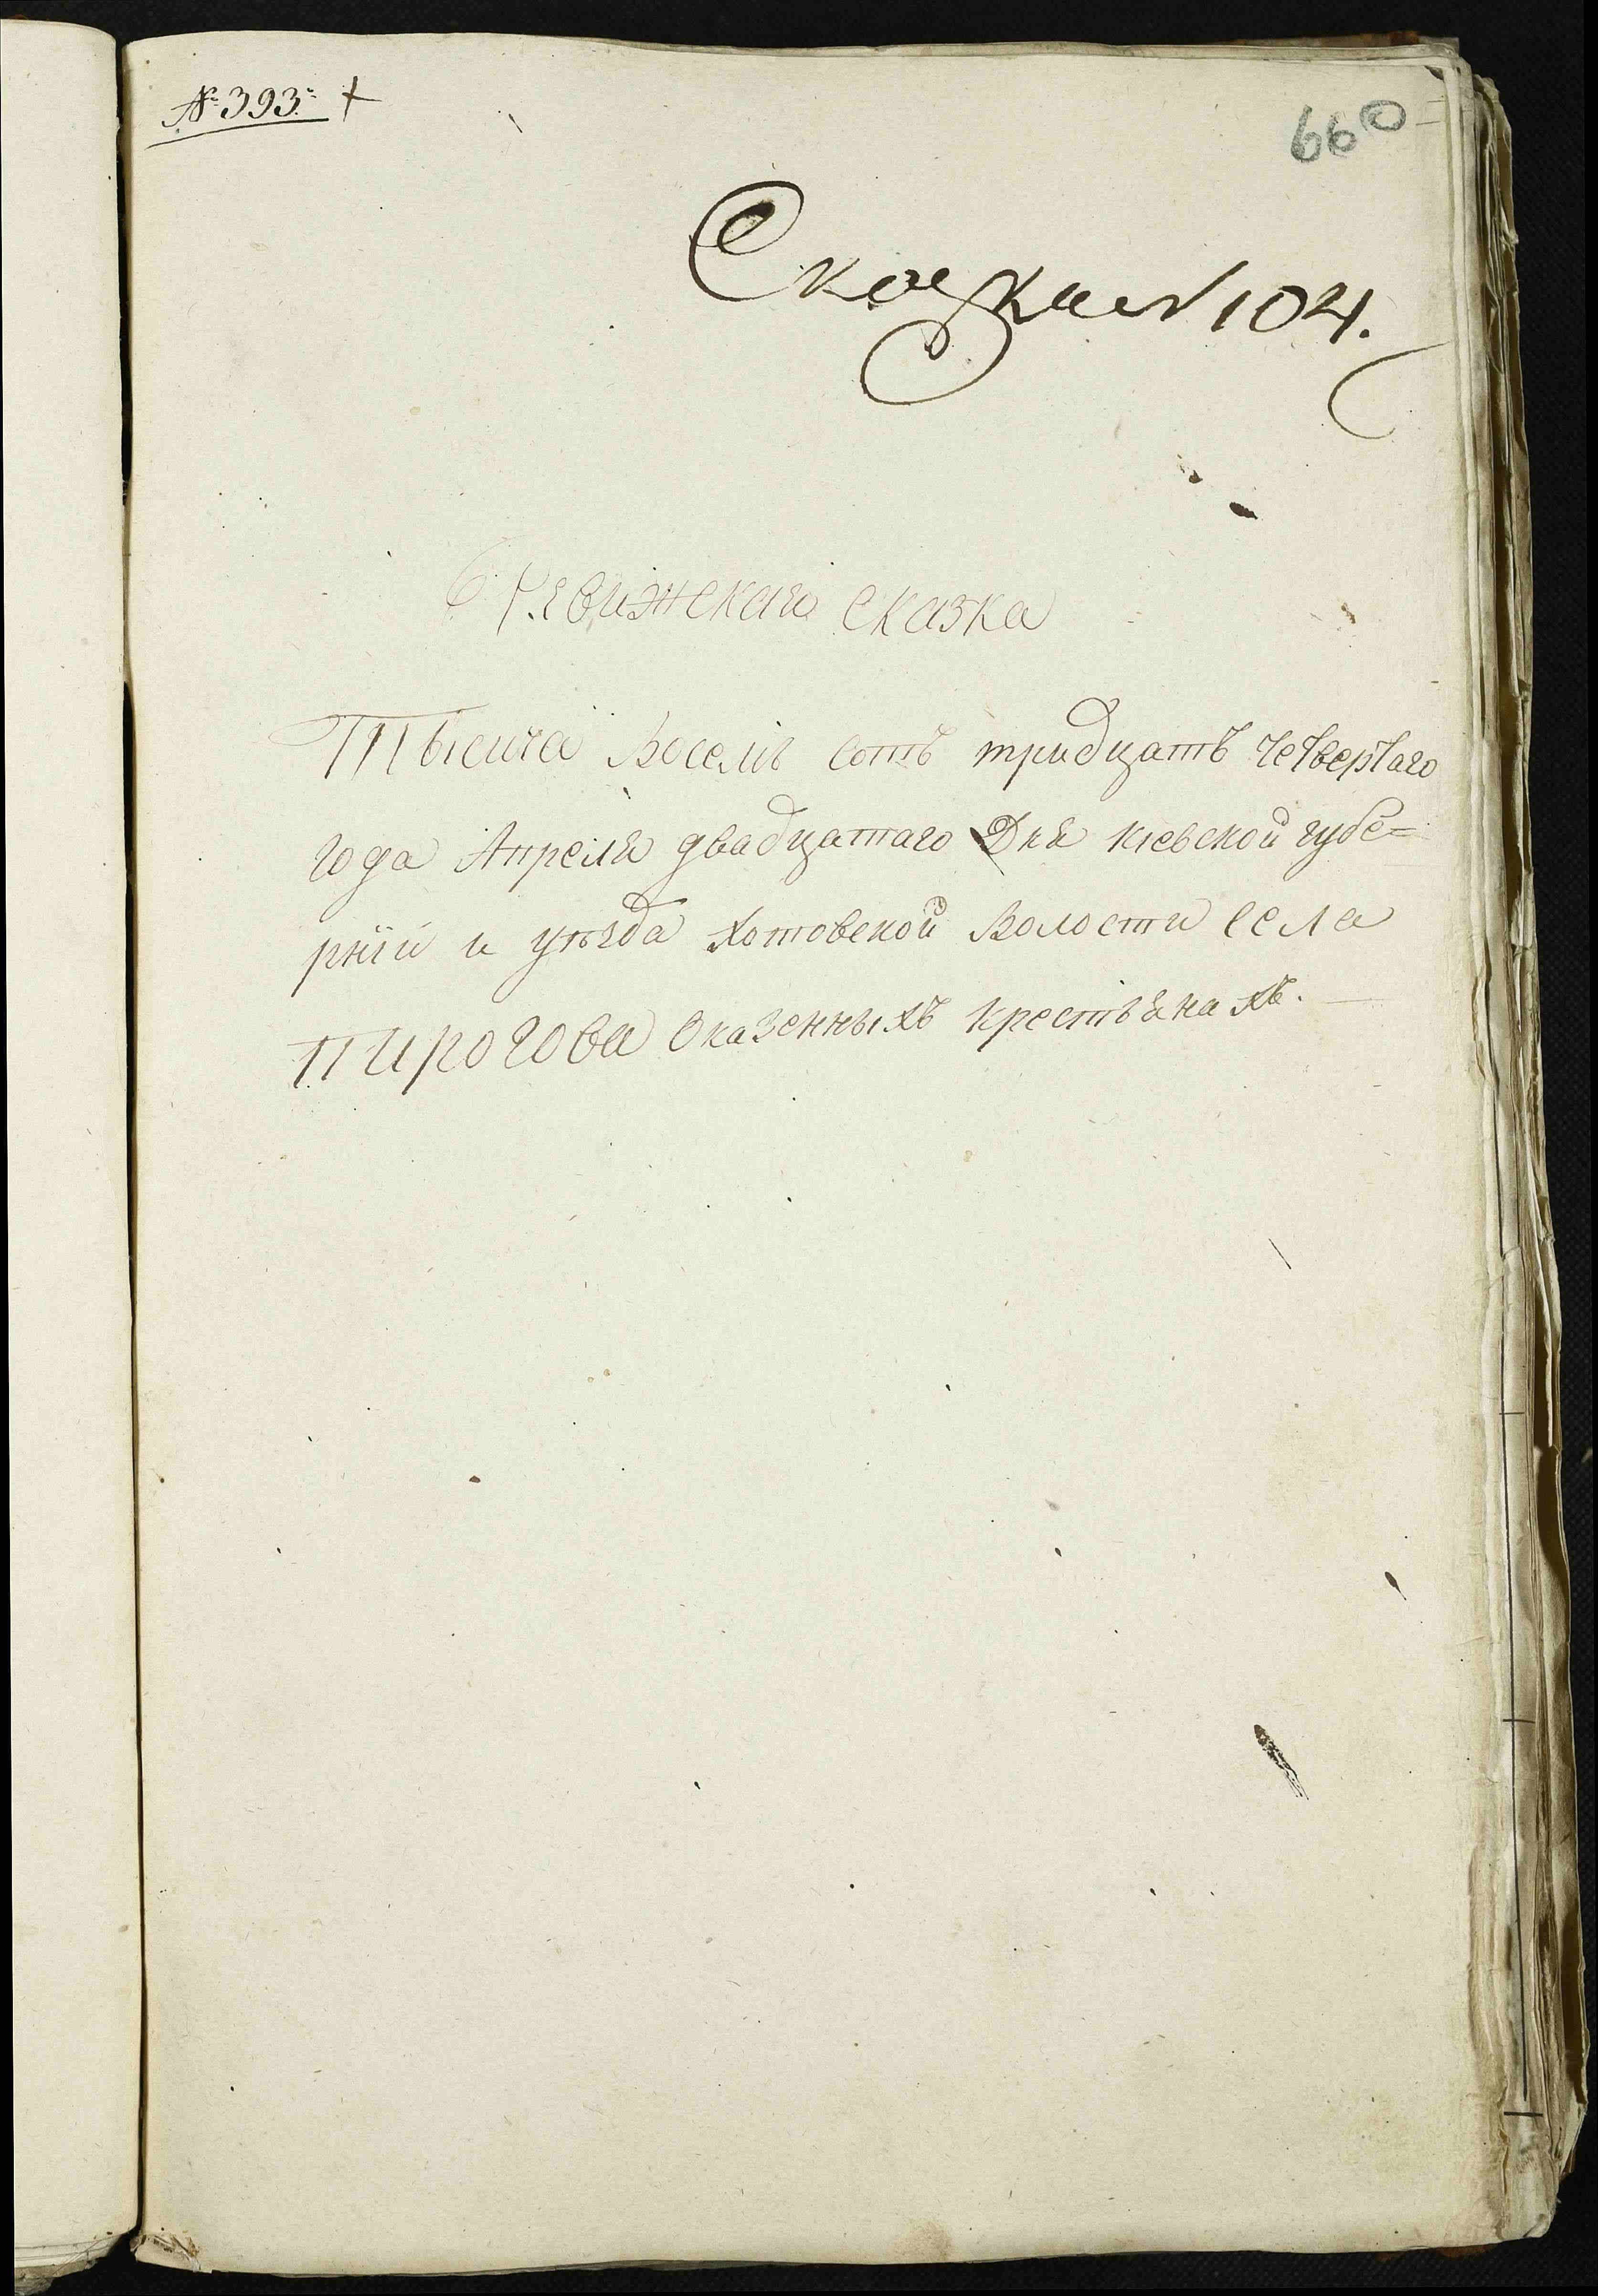 № 393. +
660
Сказка № 104.
Ревижская сказка
Тысяча Восемъ сотъ тридцать Четвертаго
года Апреля двадцатаго Дня Киевской губе=
рнїи и уѣзда Хотовской Волости села
Пирогова Оказенныхъ крестьянахъ.